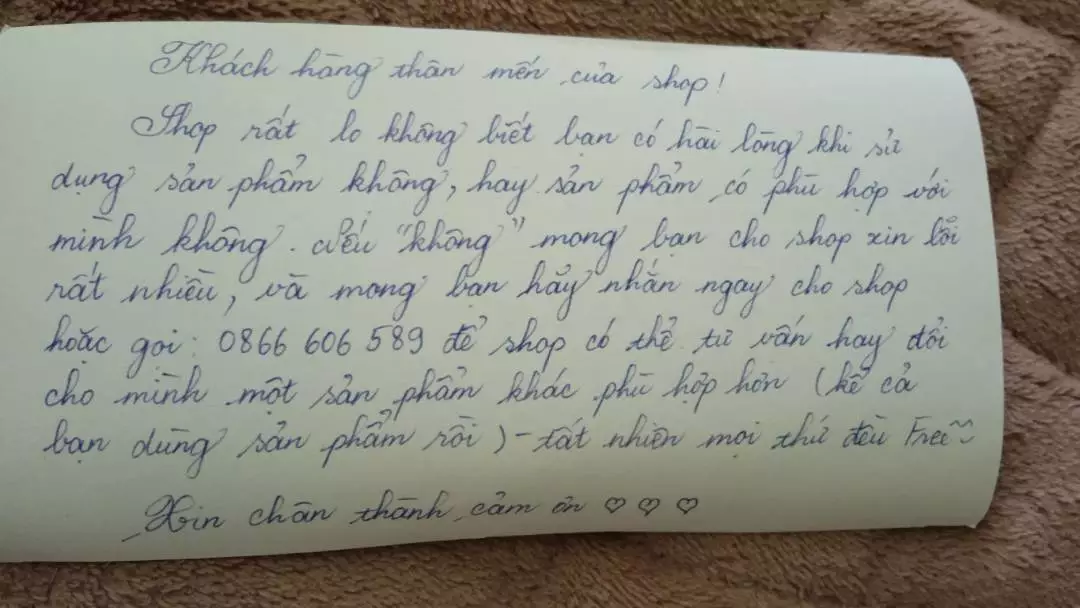 Khách hàng thân mến của shop!
Shop rất lo không biết bạn có hài lòng khi sử
dụng sản phẩm không, hay sản phẩm có phù hợp với
mình không. Nếu "không" mong bạn cho shop xin lỗi
rất nhiều, và mong bạn hãy nhắn ngay cho shop
hoặc gọi: 0866 606 589 để shop có thể tư vấn hay đổi
cho mình một sản phẩm khác phù hợp hơn (kể cả
bạn dùng sản phẩm rồi) - tất nhiên mọi thứ đều Free~~
Xin chân thành cảm ơn ♡ ♡ ♡